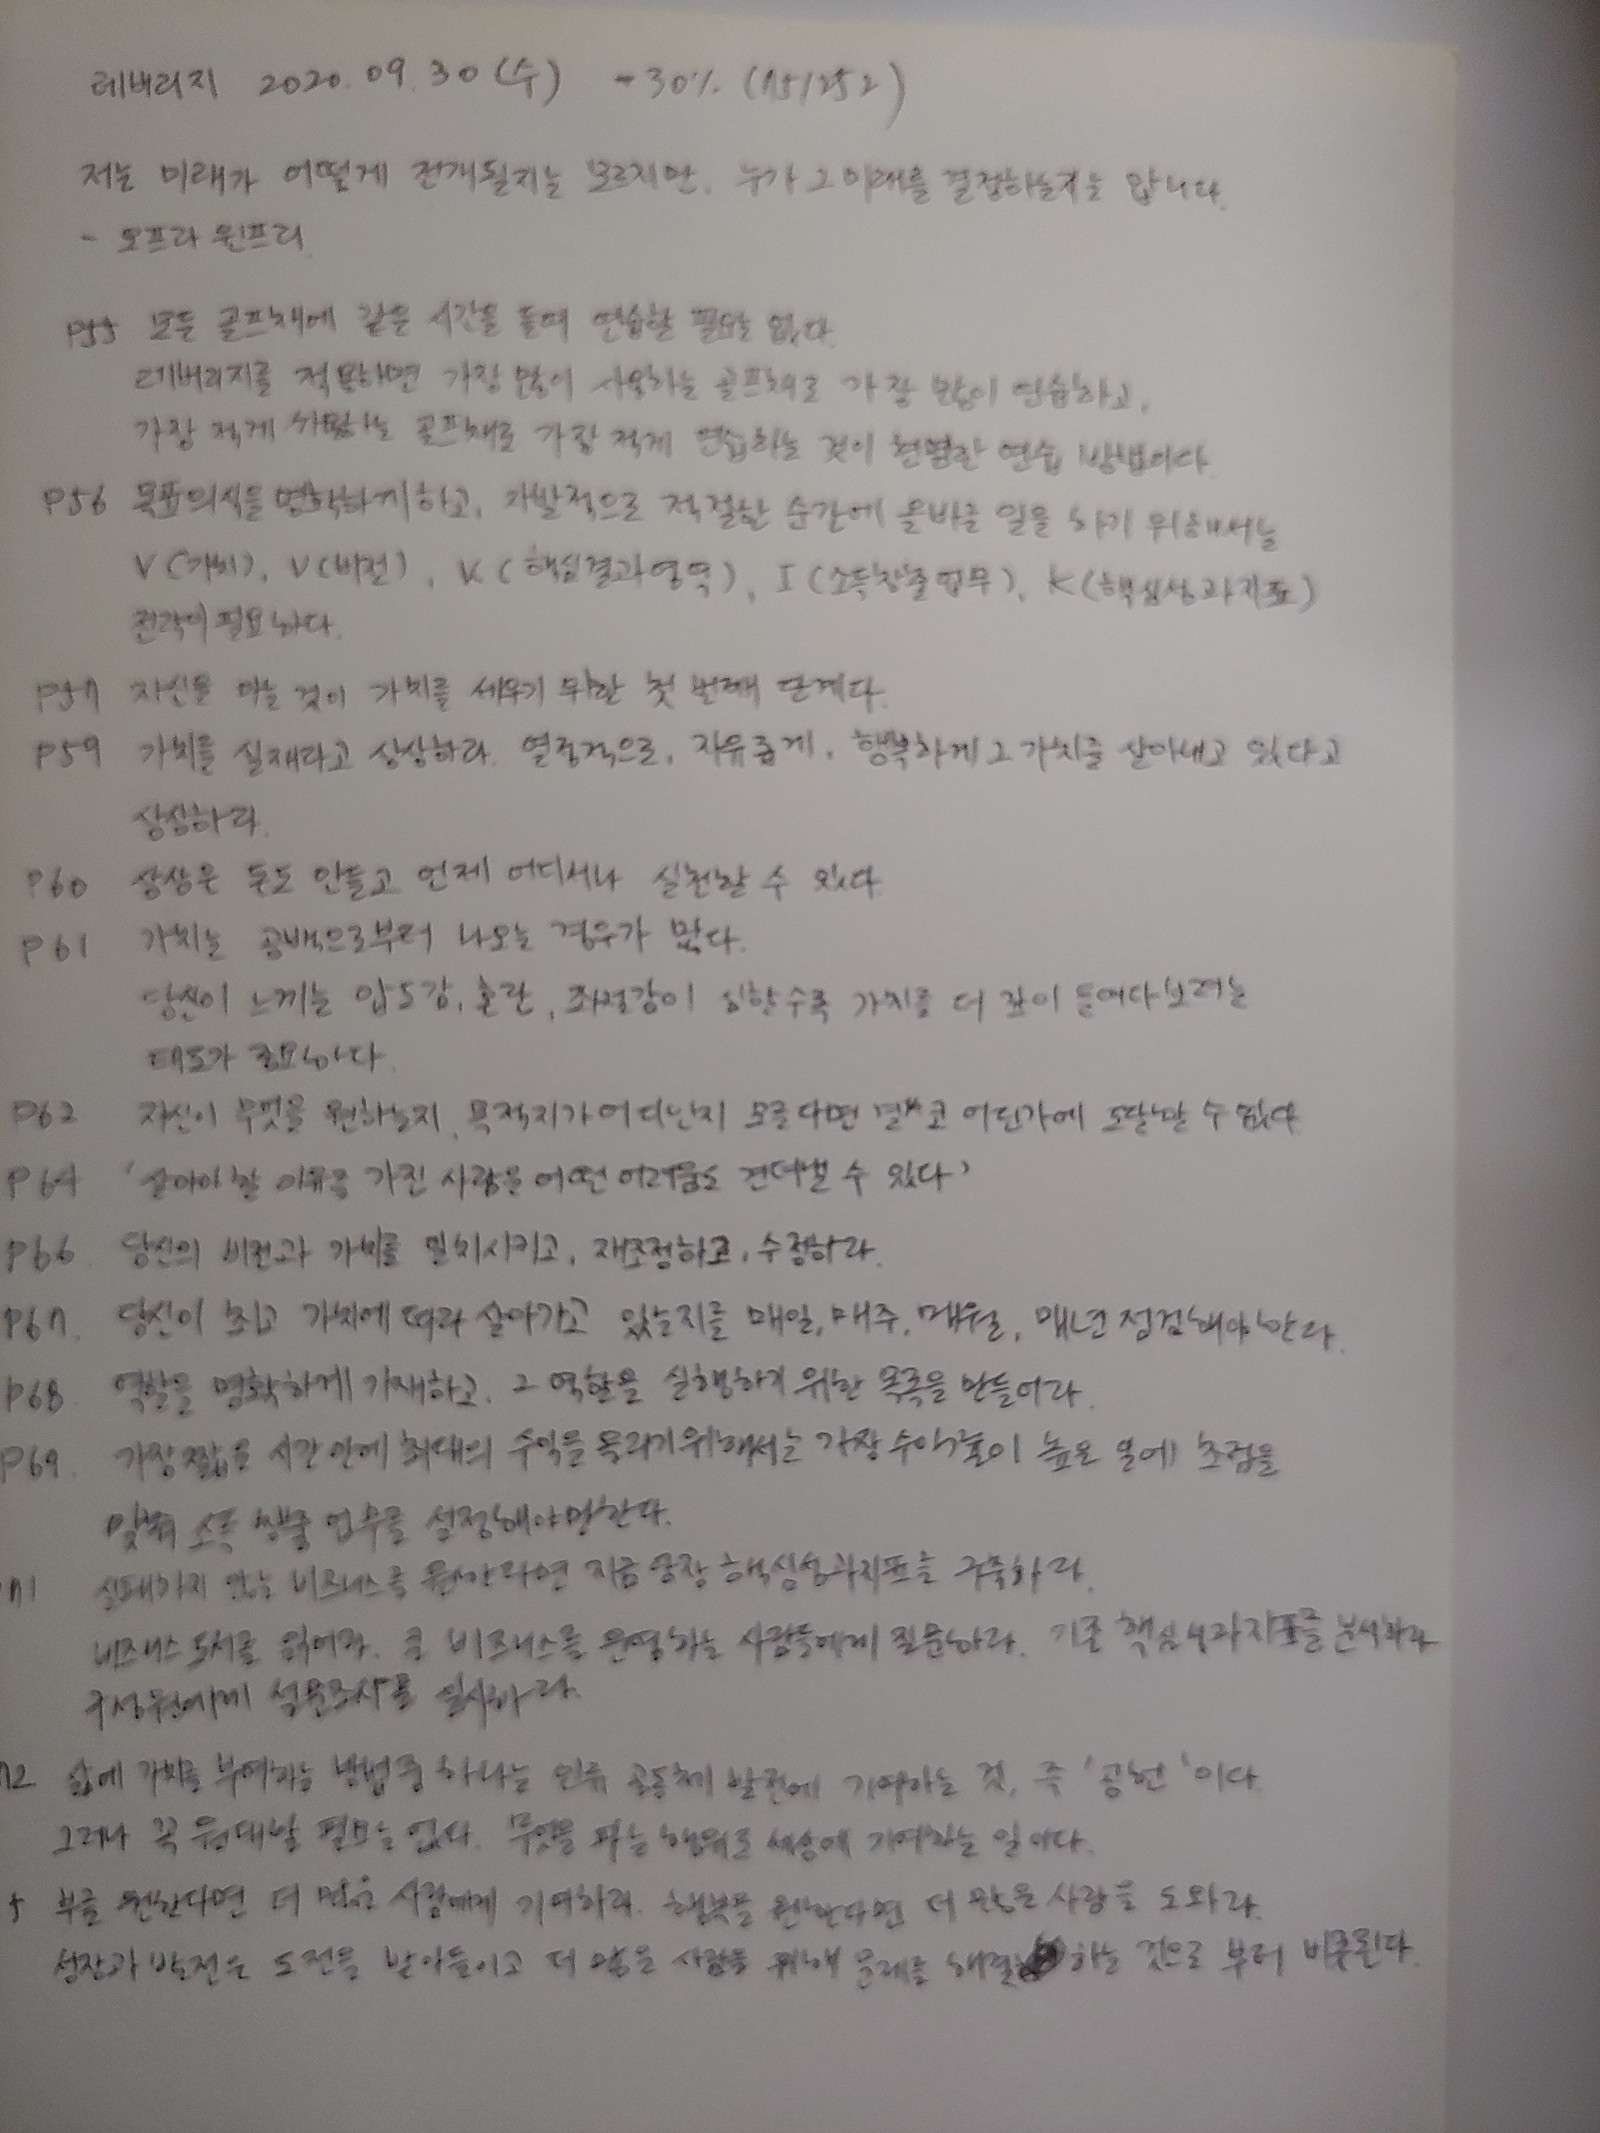 레버리지 2020. 09. 30 (수) - 30% (75/252)
저는 미래가 어떻게 전개될지는 모르지만, 누가 그 미래를 결정하는지는 압니다.
- 오프라 윈프리
P55 모든 골프채에 같은 시간을 들여 연습할 필요는 없다.
레버리지를 적용하면 가장 많이 사용하는 골프채로 가장 많이 연습하고,
가장 적게 사용하는 골프채로 가장 적게 연습하는 것이 현명한 연습 방법이다.
P56 목표의식을 명확하게 하고, 자발적으로 적절한 순간에 올바른 일을 하기 위해서는
V (가치), V (비전), K (핵심결과영역), I (소득창출업무), K (핵심성과지표)
전략이 필요하다.
P57 자신을 아는 것이 가치를 세우기 위한 첫 번째 단계다.
P59 가치를 실재라고 상상하라. 열정적으로, 자유롭게, 행복하게 그 가치를 살아내고 있다고
상상하라.
P60 상상은 돈도 안들고 언제 어디서나 실천할 수 있다
P61 가치는 공백으로부터 나오는 경우가 많다.
당신이 느끼는 압도감, 혼란, 좌절감이 심할수록 가치를 더 깊이 들여다보려는
태도가 중요하다.
P62 자신이 무엇을 원하는지, 목적지가 어디인지 모른다면 결코 어딘가에 도달할 수 없다
P64 '살아야 할 이유를 가진 사람은 어떤 어려움도 견뎌낼 수 있다'
P66. 당신의 비전과 가치를 일치시키고, 재조정하고, 수정하라.
P67. 당신이 최고 가치에 따라 살아가고 있는지를 매일, 매주, 매월, 매년 점검해야한다.
P68. 역할을 명확하게 기재하고, 그 역할을 실행하기 위한 목록을 만들어라.
P69. 가장 짧은 시간 안에 최대의 수익을 올리기 위해서는 가장 수익률이 높은 일에 초점을
맞춰 소득 창출 업무를 설정해야만한다.
71 실패하지 않는 비즈니스를 원한다면 지금 당장 핵심성과지표를 구축하라.
비즈니스 도서를 읽어라. 큰 비즈니스를 운영하는 사람들에게 질문하라. 기존 핵심성과지표를 분석하라
구성원에게 설문조사를 실시하라.
72 삶에 가치를 부여하는 방법중 하나는 인류 공동체 발전에 기여하는 것, 즉 '공헌'이다.
그러나 꼭 원대할 필요는 없다. 무엇을 파는 행위도 세상에 기여하는 일이다.
5 부를 원한다면 더 많은 사람에게 기여하라. 행복을 원한다면 더 많은 사람을 도와라.
성장과 발전은 도전을 받아들이고 더 많은 사람을 위해 문제를 해결하는 것으로 부터 비롯된다.